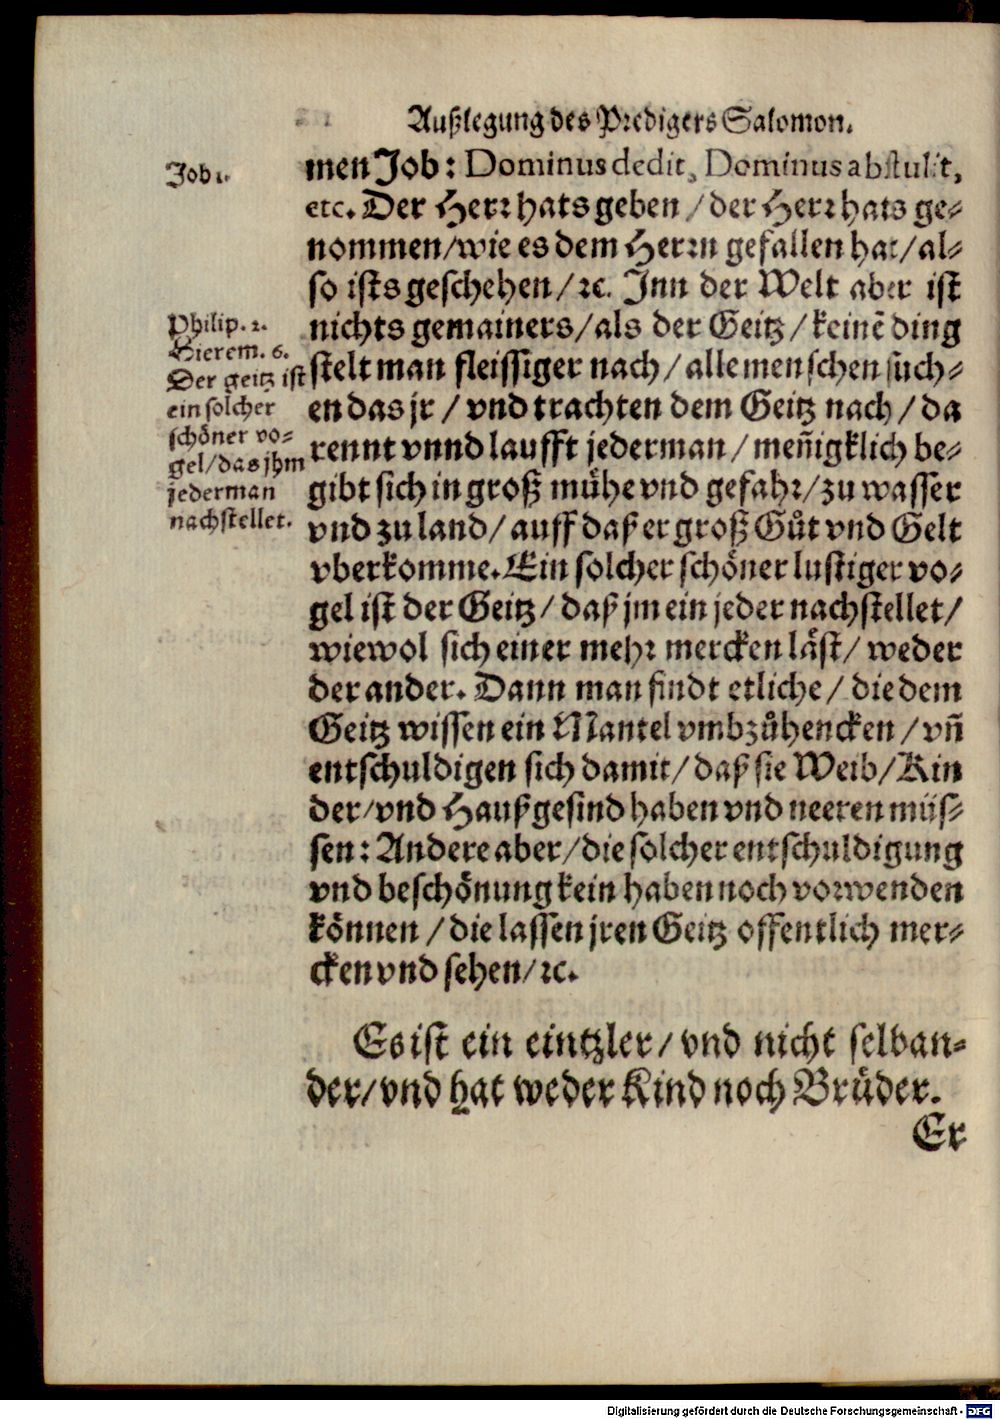 Außlegung des Predigers Salomon.
Job 1.
men Job: Dominus dedit, Dominus abstulit,
etc. Der Herr hats geben / der Herr hats ge-
nommen/wie es dem Herrn gefallen hat/al-
so ists geschehen/ꝛc. Inn der Welt aber ist
nichts gemainers/als der Geitz/keinē ding
stelt man fleissiger nach/alle menschen sůch-
en das jr / vnd trachten dem Geitz nach/da
rennt vnnd laufft jederman/meñigklich be-
gibt sich in groß mühe vnd gefahr/zu wasser
vnd zu land/auff daß er groß Gůt vnd Gelt
vberkomme. Ein solcher schöner lustiger vo-
gel ist der Geitz/daß jm ein jeder nachstellet/
wiewol sich einer mehr mercken läst/weder
der ander. Dann man findt etliche/die dem
Geitz wissen ein Mantel vmbzůhencken/vñ
entschuldigen sich damit/daß sie Weib/Kin
der/vnd Haußgesind haben vnd neeren müs-
sen: Andere aber/die solcher entschuldigung
vnd beschönung kein haben noch vorwenden
können/die lassen jren Geitz offentlich mer-
cken vnd sehen/ꝛc.
Philip. 2.
Hierem. 6.
Der geitz ist
ein solcher
schöner vo-
gel/das jhm
jederman
nachstellet.
Es ist ein eintzler/vnd nicht selban-
der/vnd hat weder Kind noch Brüder.
Er
Digitalisierung gefördert durch die Deutsche Forschungsgemeinschaft - DFG